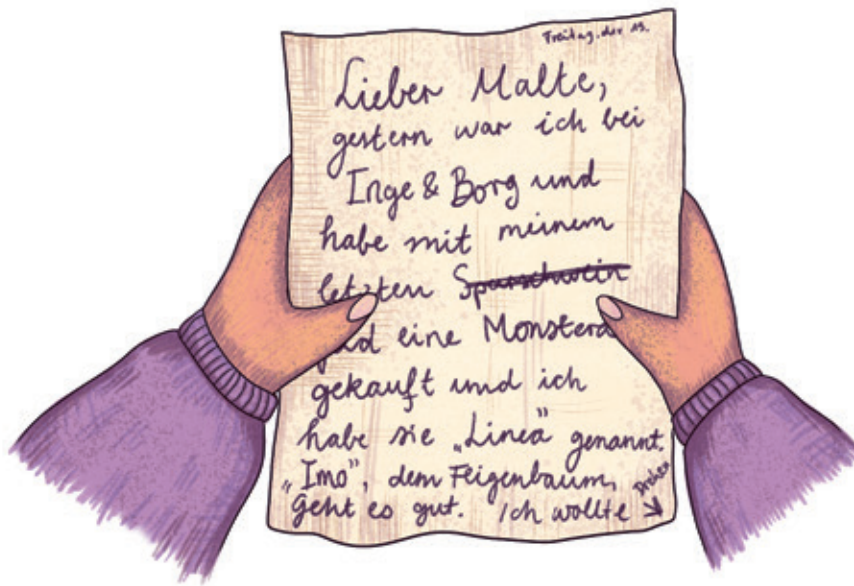 Freitag, der 19.
Lieber Malte,
gestern war ich bei
Inge & Borg und
habe mit meinem
letzten Sparschwein
eine Monstera
gekauft und ich
habe sie „Linea“ genannt.
„Imo“, dem Feigenbaum,
geht es gut. Ich wollte
Drehen